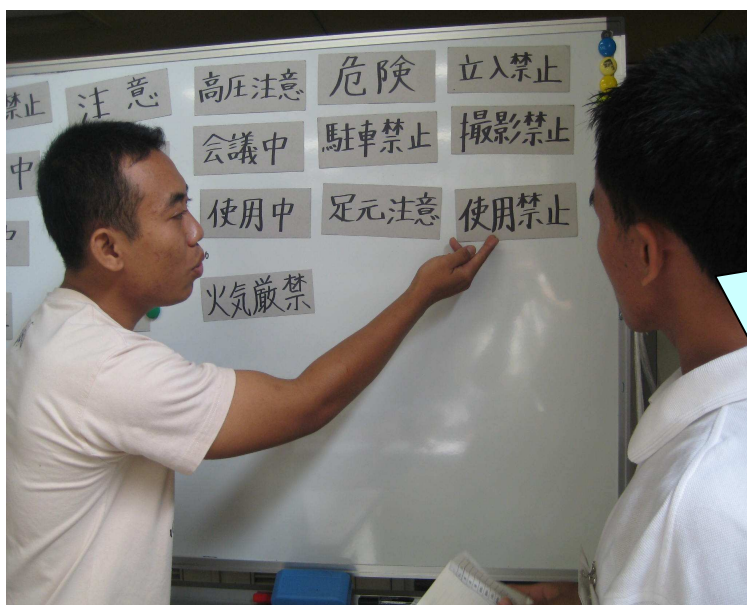 禁止 注意 高圧注意 危険 立入禁止
中 会議中 駐車禁止 撮影禁止
使用中 足元注意 使用禁止
火気厳禁